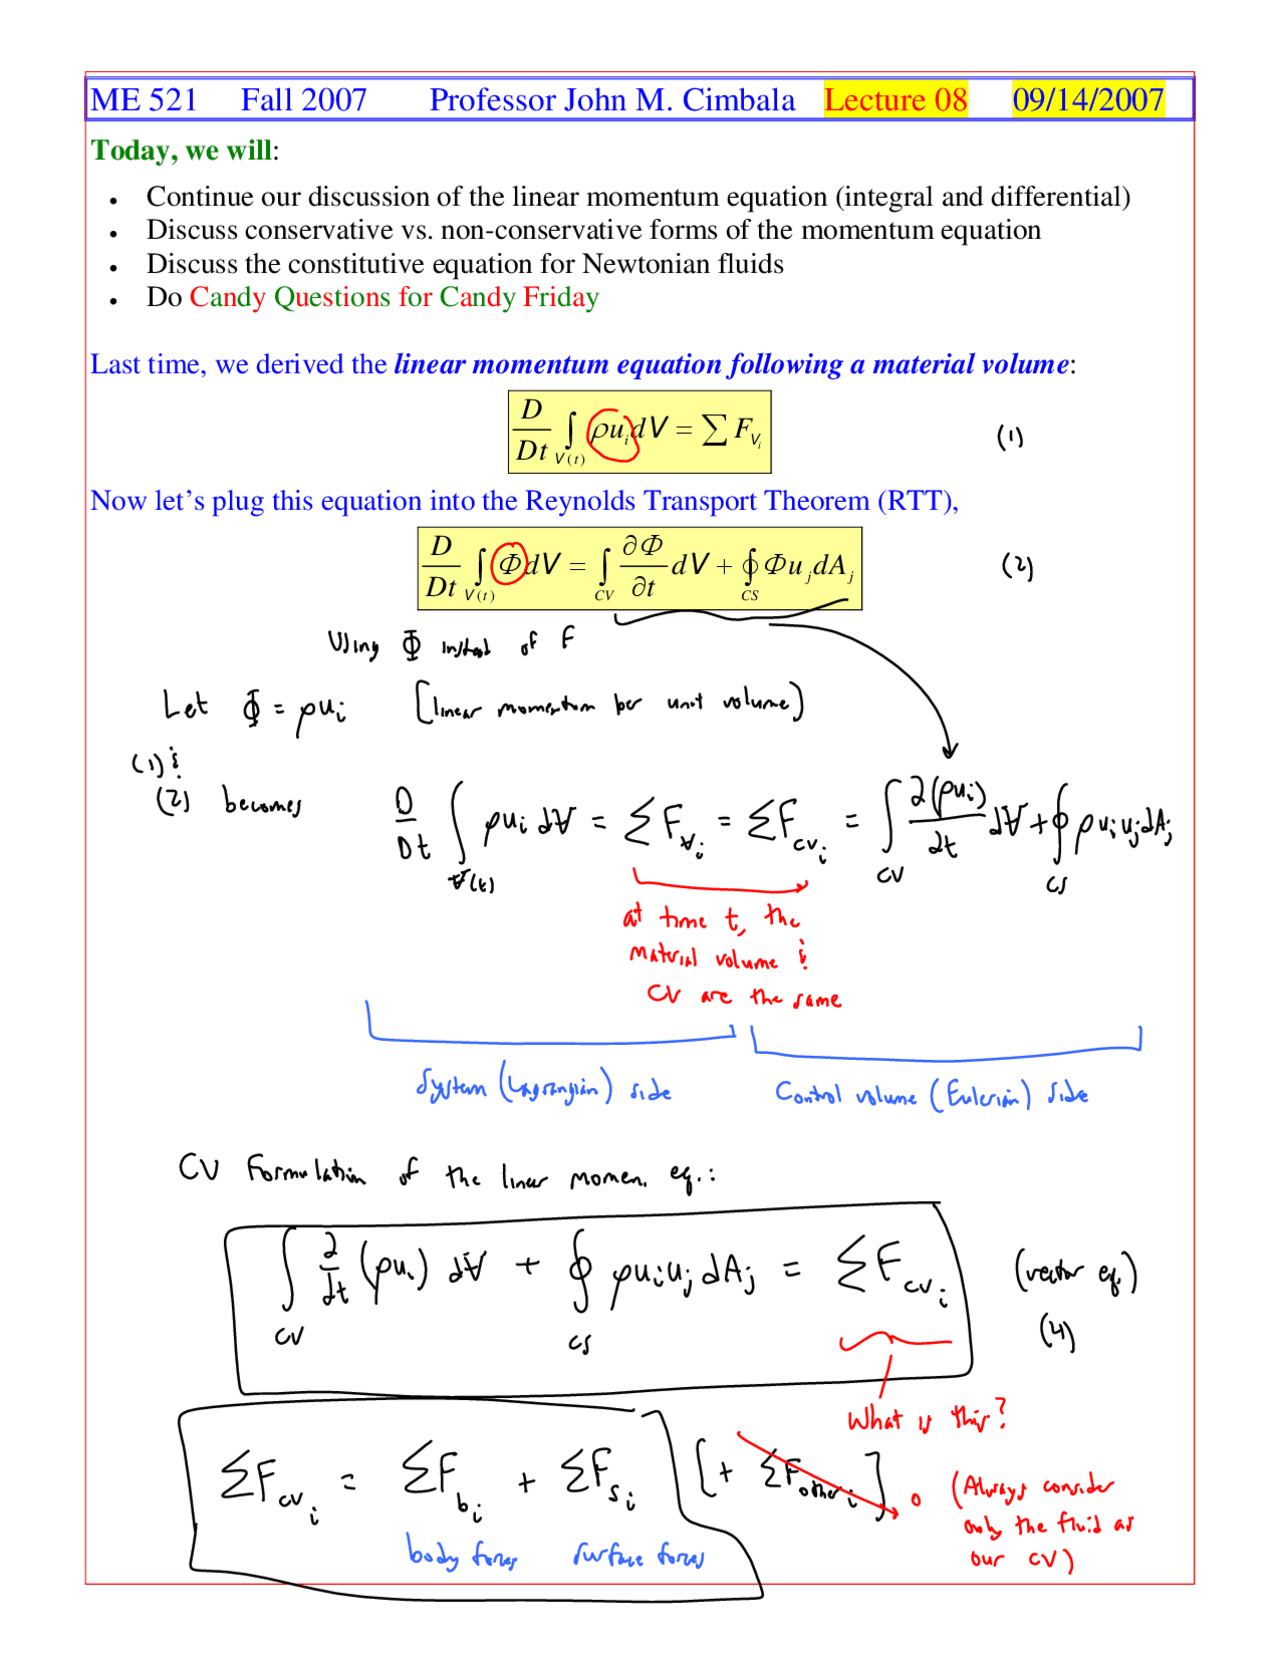 ME 521 Fall 2007 Professor John M. Cimbala Lecture 08 09/14/2007
Today, we will:
• Continue our discussion of the linear momentum equation (integral and differential)
• Discuss conservative vs. non-conservative forms of the momentum equation
• Discuss the constitutive equation for Newtonian fluids
• Do Candy Questions for Candy Friday
Last time, we derived the linear momentum equation following a material volume:
D/Dt ∫_{V(t)} ρu_i dV = ∑ F_{V_i} (1)
Now let's plug this equation into the Reynolds Transport Theorem (RTT),
D/Dt ∫_{V(t)} Φ dV = ∫_{CV} ∂Φ/∂t dV + ∮_{CS} Φu_j dA_j (2)
Using Φ instead of F
Let Φ = ρu_i [linear momentum per unit volume)
(1) &
(2) becomes D/Dt ∫_{V(t)} ρu_i dV = ∑F_{V_i} = ∑F_{CV_i} = ∫_{CV} ∂(ρu_i)/∂t dV + ∮_{CS} ρu_i u_j dA_j
at time t, the
material volume &
CV are the same
System (Lagrangian) side Control volume (Eulerian) side
CV Formulation of the linear momen. eq.:
∫_{CV} ∂/∂t (ρu_i) dV + ∮_{CS} ρu_i u_j dA_j = ∑F_{CV_i} (vector eq.)
(4)
What is this?
∑F_{CV_i} = ∑F_{b_i} + ∑F_{s_i} [+ ∑F_{other_i}] 0 (Always consider
only the fluid as
our CV)
body forces surface forces